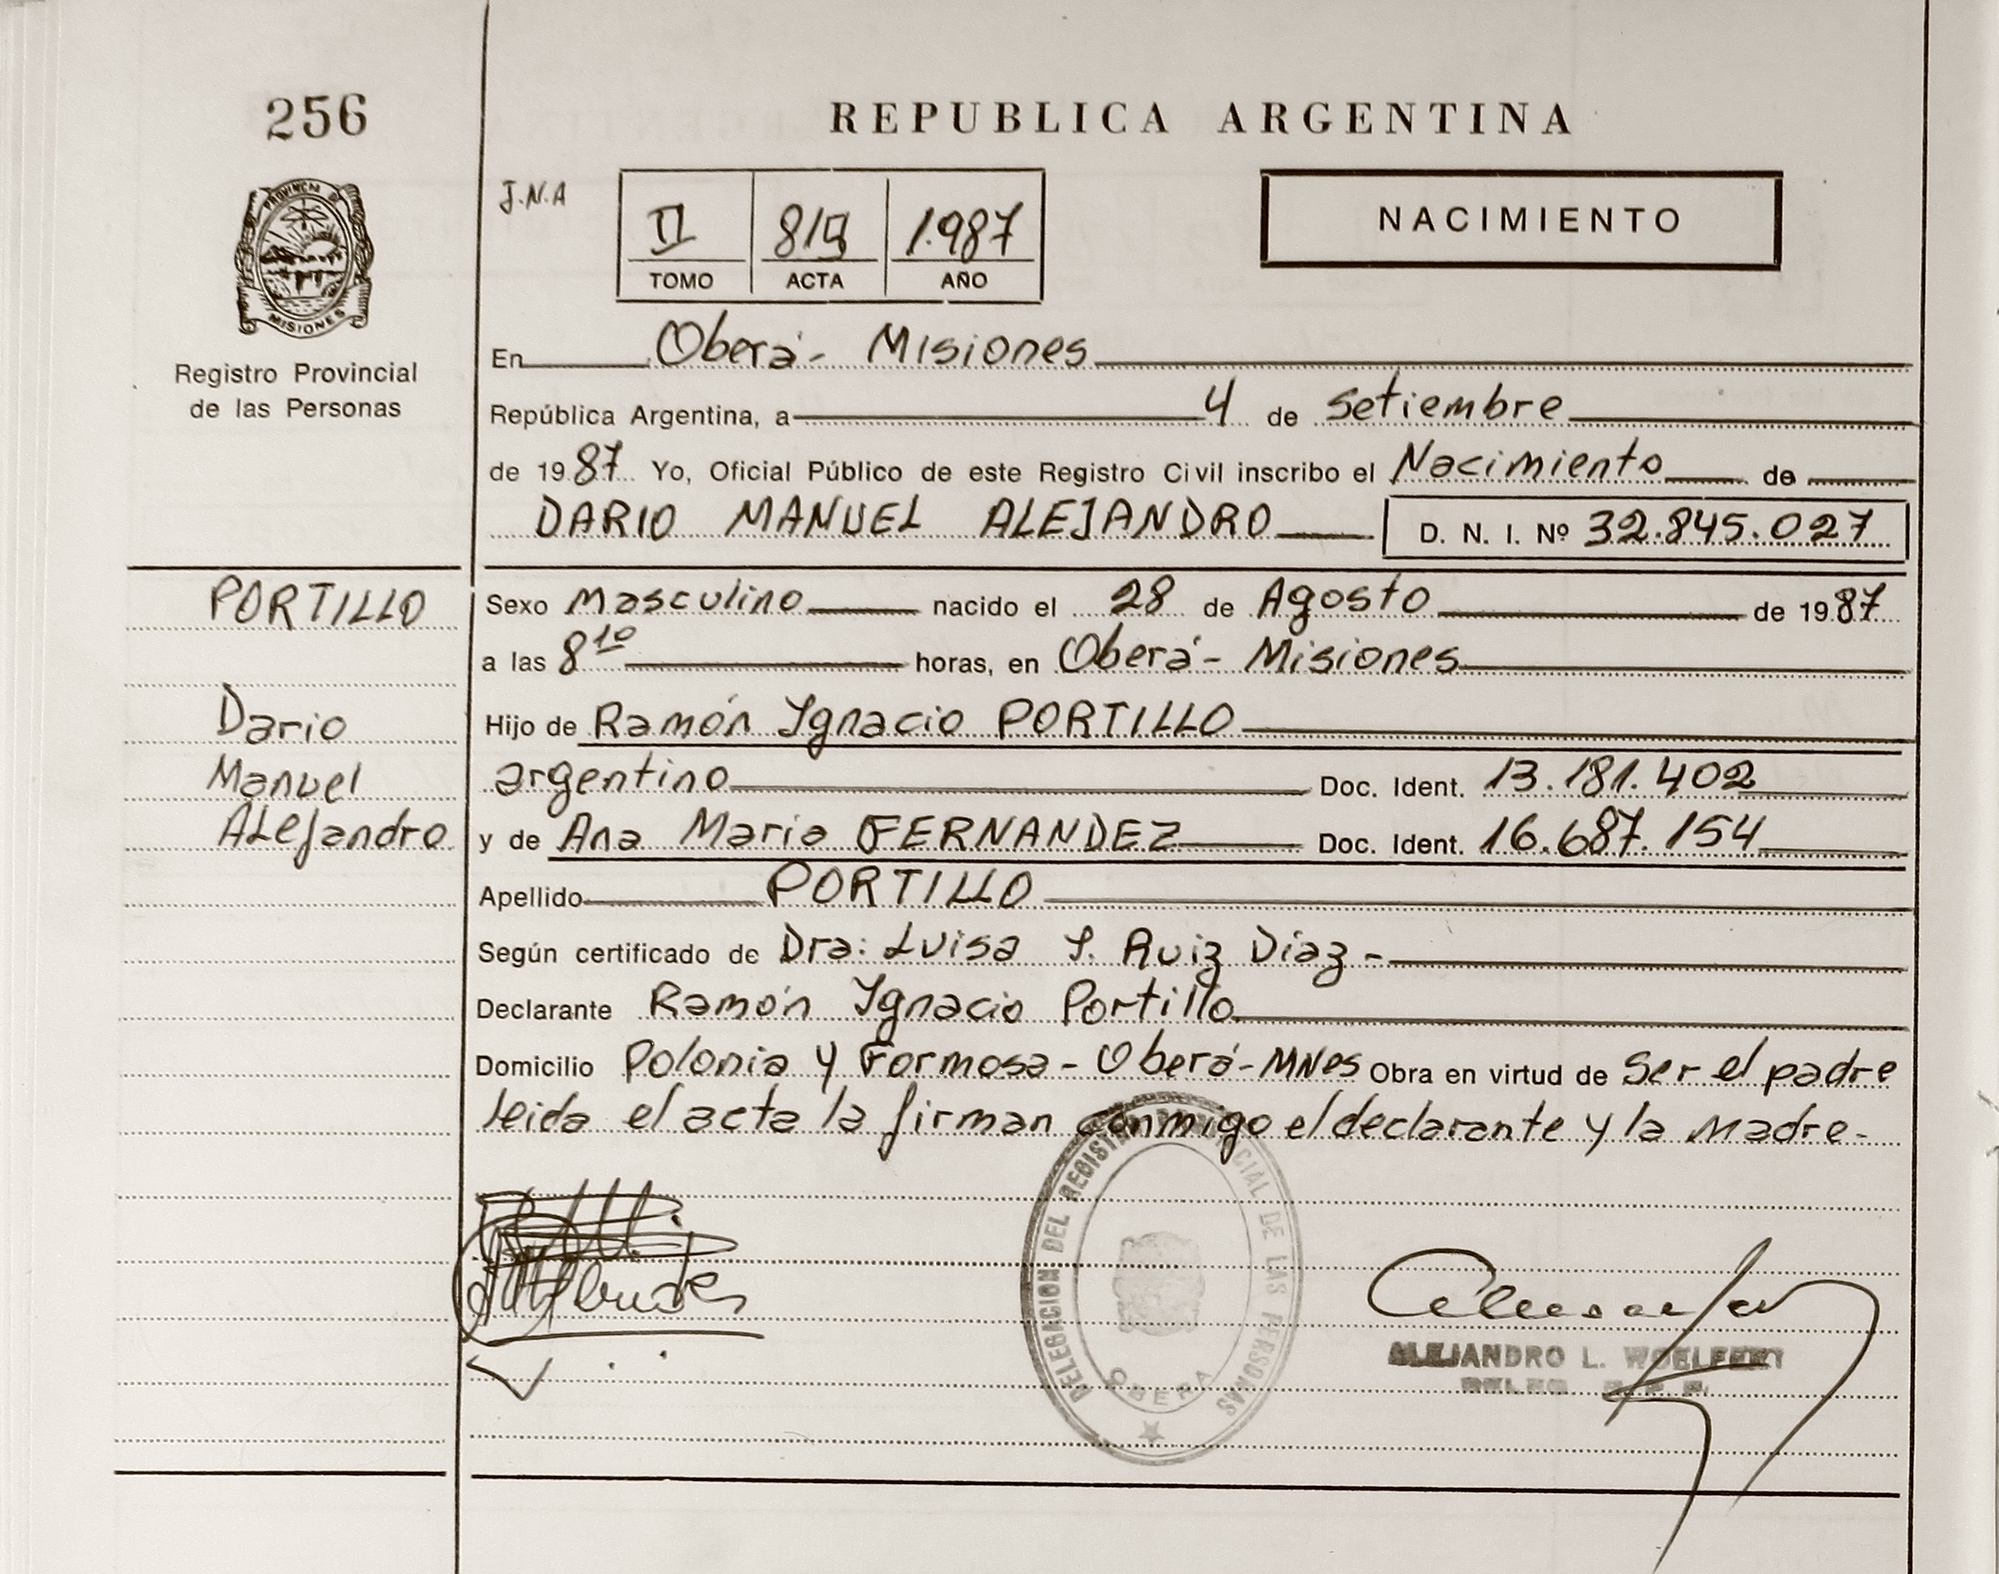 256
REPUBLICA ARGENTINA
PROVINCIA D
MISIONES
Registro Provincial
de las Personas
J.N.A
II 1.987
TOMO ACTA AÑO
NACIMIENTO
En Oberá - Misiones
República Argentina, a 4 de Setiembre
de 1987 Yo, Oficial Público de este Registro Civil inscribo el Nacimiento de
DARIO MANUEL ALEJANDRO D. N. I. Nº 32.845.027
PORTILLO
Dario
Manuel
Alejandro
Sexo Masculino nacido el 28 de Agosto de 1987
a las 8 10 horas, en Oberá - Misiones
Hijo de Ramón Ygnacio PORTILLO
argentino Doc. Ident. 13.181.402
y de Ana Maria FERNANDEZ Doc. Ident. 16.687.154
Apellido PORTILLO
Según certificado de Dra: Luisa Ruiz Díaz -
Declarante Ramón Ygnacio Portillo
Domicilio Polonia y Formosa - Oberá - MNes Obra en virtud de ser el padre
leida el acta la firman conmigo el declarante y la Madre-
DELEGACION DEL REGISTRO PROVINCIAL DE LAS PERSONAS
OBERA
ALEJANDRO L.